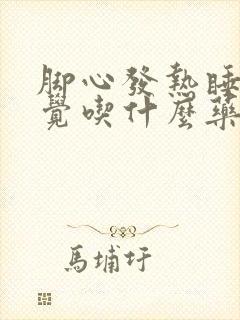 脚心發熱睡
覺喫什麼藥
馬埔圩